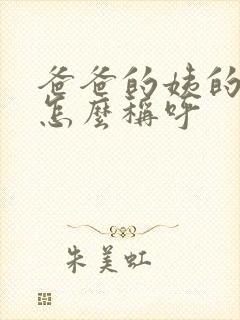 爸爸的姨的
怎麼稱呼
朱美虹